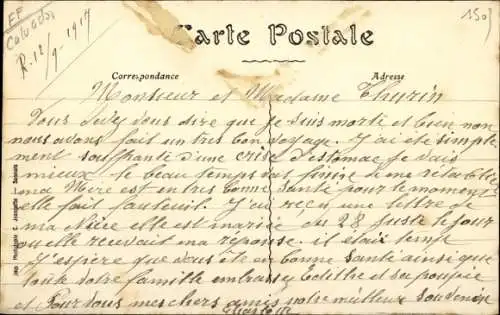 FF
Calvados
R. 12/9-1917
Carte Postale
Correspondance
Adresse
Monsieur et Madame Thurin
Vous devez vous dire que je suis morte et bien non
nous avons fait un tres bon voyage. J'ai été simple
ment souffrante d'une crise d'estomac je vais
mieux le beau temps finira de me retablir
ma Mere est en tres bonne santé pour le moment
elle fait fauteuil. J'ai reçu une lettre de
ma Niece elle est mariée du 28 juste le jour
ou elle recevait ma reponse. il etait temps
J'espère que vous ête en bonne santé ainsi que
toute votre famille embrassez Edithe et sa poupée
et Pour vous mes chers amis notre meilleur souvenir
Charlotte